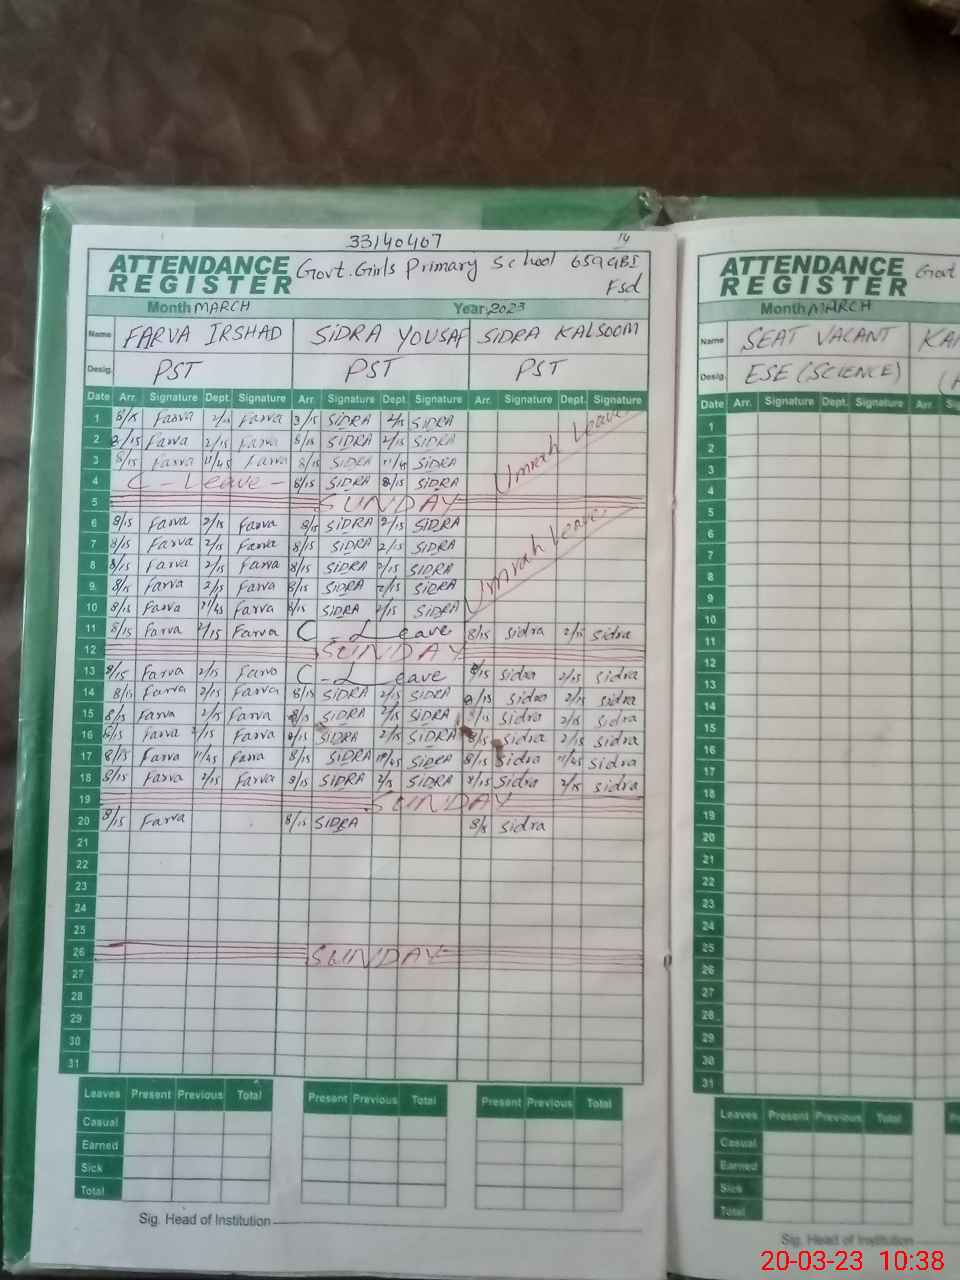 33140407
14
ATTENDANCE REGISTER Govt. Girls Primary School 659 GBI Fsd
Month MARCH Year 2023
Name FARVA IRSHAD SIDRA YOUSAF SIDRA KALSOOM
Desig. PST PST PST
Date Arr. Signature Dept. Signature Arr. Signature Dept. Signature Arr. Signature Dept. Signature
1 8/15 Farva 2/15 Farva 8/15 SIDRA 2/15 SIDRA
2 8/15 Farva 2/15 Farva 8/15 SIDRA 2/15 SIDRA
3 8/15 Farva 11/45 Farva 8/15 SIDRA 11/45 SIDRA Umrah Leave
4 C - Leave - 8/15 SIDRA SIDRA
5 SUNDAY
6 8/15 Farva 2/15 Farva 8/15 SIDRA 2/15 SIDRA
7 8/15 Farva 2/15 Farva 8/15 SIDRA 2/15 SIDRA
8 8/15 Farva 2/15 Farva 8/15 SIDRA 2/15 SIDRA Umrah Leave
9 8/15 Farva 2/15 Farva 8/15 SIDRA 2/15 SIDRA
10 8/15 Farva 11/45 Farva 8/15 SIDRA 2/15 SIDRA
11 8/15 Farva 2/15 Farva C - Leave 8/15 sidra 2/15 sidra
12 SUNDAY
13 8/15 Farva 2/15 Farva C - Leave 8/15 sidra 2/15 sidra
14 8/15 Farva 2/15 Farva 8/15 SIDRA 2/15 SIDRA 8/15 sidra 2/15 sidra
15 8/15 Farva 2/15 Farva 8/15 SIDRA 2/15 SIDRA 8/15 sidra 2/15 sidra
16 8/15 Farva 2/15 Farva 8/15 SIDRA 2/15 SIDRA 8/15 sidra 2/15 sidra
17 8/15 Farva 11/45 Farva 8/15 SIDRA 11/45 SIDRA 8/15 sidra 11/45 sidra
18 8/15 Farva 2/15 Farva 8/15 SIDRA 2/15 SIDRA 8/15 sidra 2/15 sidra
19 SUNDAY
20 8/15 Farva 8/15 SIDRA sidra
21
22
23
24
25
26 SUNDAY
27
28
29
30
31
Leaves Present Previous Total Present Previous Total Present Previous Total
Casual
Earned
Sick
Total
Sig. Head of Institution
ATTENDANCE REGISTER
Month MARCH
Name SEAT VACANT
Desig. ESE (SCIENCE)
Date Arr. Signature Dept. Signature Arr.
1
2
3
4
5
6
7
8
9
10
11
12
13
14
15
16
17
18
19
20
21
22
23
24
25
26
27
28
29
30
31
Leaves Present Previous Total
Casual
Earned
Sick
Total
Sig. Head of Institution
20-03-23 10:38